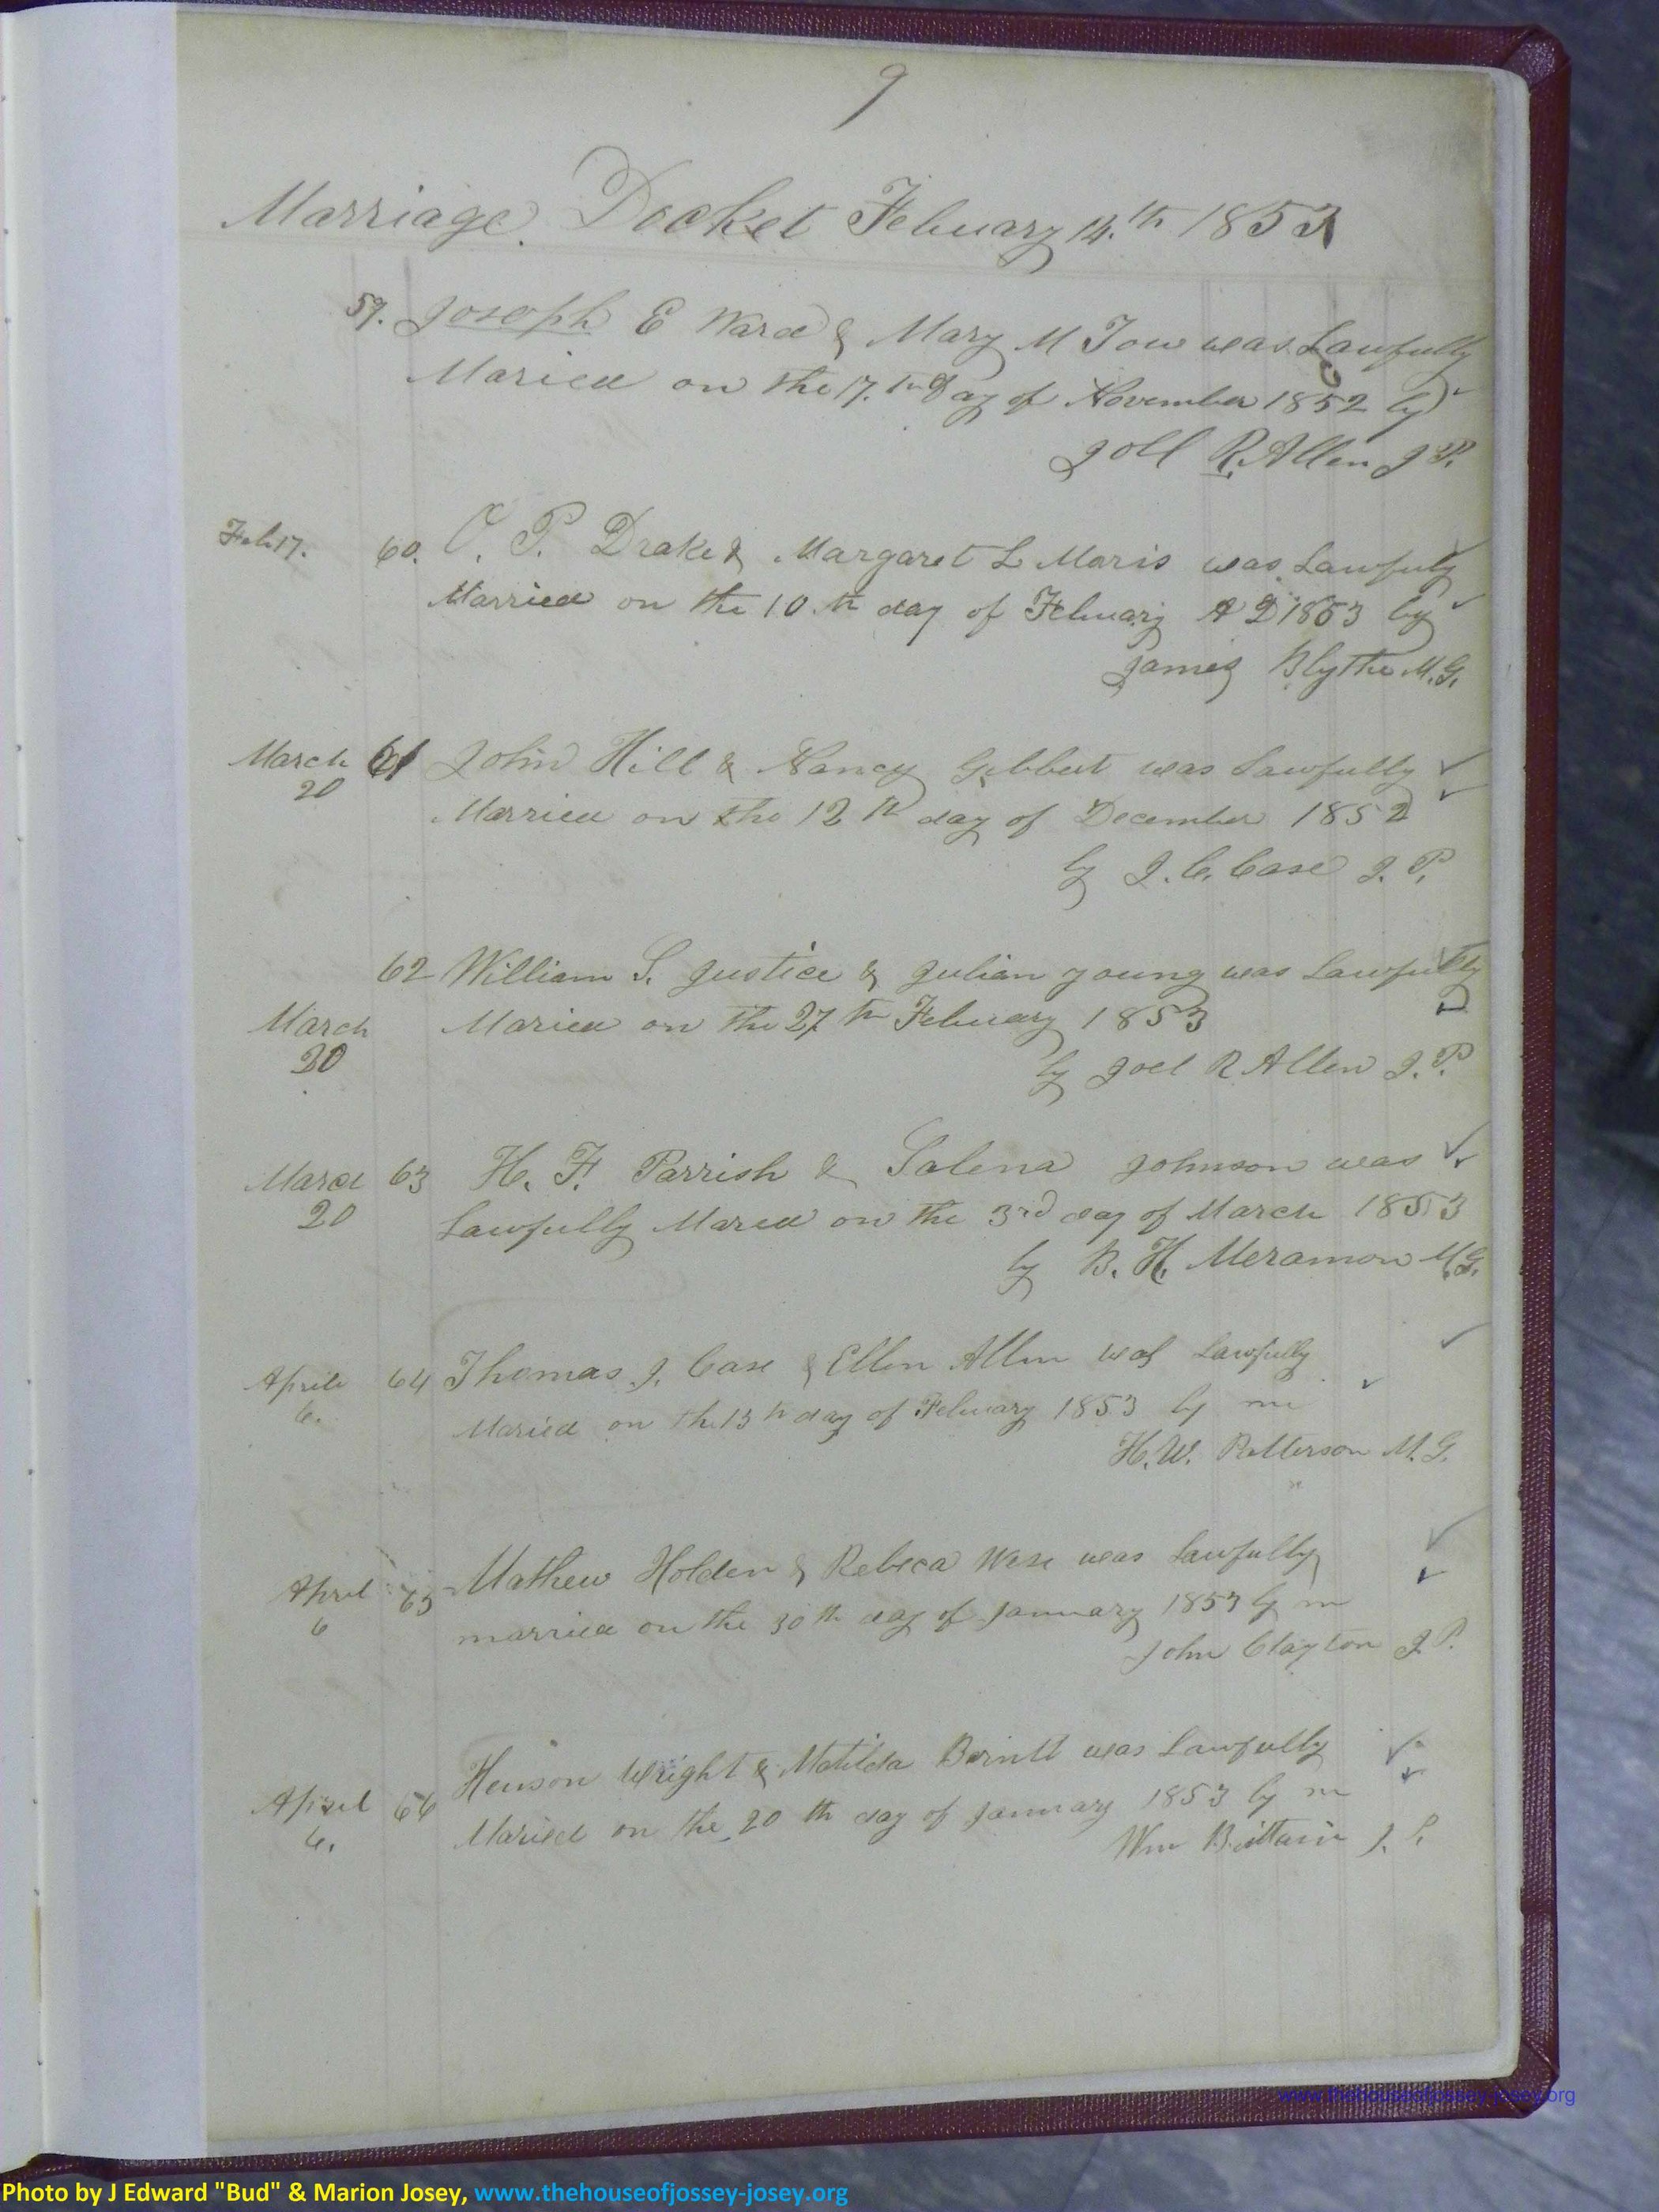 9
Marriage Docket Febuary 14.th 1853
59. Joseph E Ward & Mary M Tow was Lawfully
Maried on the 17.th Day of November 1852 by
Joll R. Allen J P.
Feb 17. 60. O. P. Drake & Margaret L Maris was Lawfuly
Married on the 10.th day of Febuary A D 1853 by
James Blythe M.G.
March 61 John Hill & Nancy Gibbert was Lawfully
20 Married on the 12th day of December 1852
by J. C. Case J. P.
62 William S. Justice & Julian young was Lawfully
March Maried on the 27th Febuary 1853
20 by Joel R Allen J. P.
March 63 H. F. Parrish & Salena Johnson was
20 Lawfully Maried on the 3rd day of March 1853
by B. H. Meramon M.G.
Aprile 64 Thomas J. Case & Ellen Allen was Lawfully
6. Maried on the 13th day of Febuary 1853 by me
H. W. Patterson M. G.
April 65 Mathew Holden & Rebeca Wese was Lawfully
6 married on the 30th day of January 1853 by m
John Clayton J. P.
Henson Wright & Matilda was Lawfully
April 66 Maried on the 20th day of January 1853 by m
6. Wm Brittain J. P.
www.thehouseofjossey-josey.org
Photo by J Edward "Bud" & Marion Josey, www.thehouseofjossey-josey.org